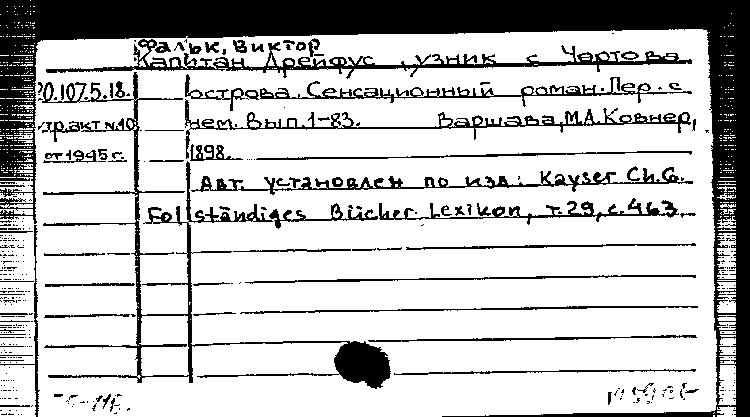 Фальк, Виктор
Капитан Дрейфус, узник с Чортова
20.107.5.18. острова. Сенсационный роман. Пер. с
тр.акт №10 нем. Вып. 1-83. Варшава, М.А. Ковнер,
от 1945 г. 1898.
Авт. установлен по изд: Kayser Ch.G.
Follständiges Bücher Lexikon, т. 29, с. 463